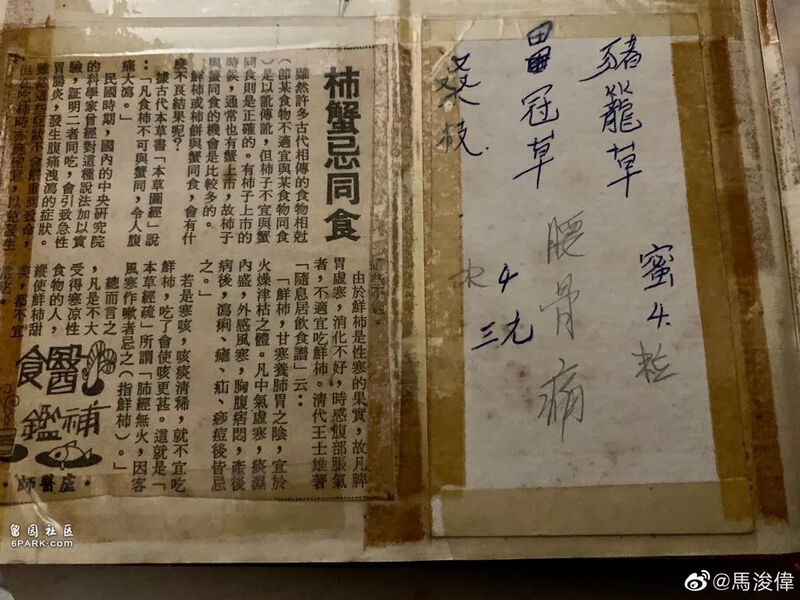 柿蟹忌同食
雖然許多古代相傳的食物相尅
(即某食物不適宜與某食物同食
)是以訛傳訛,但柿子不宜與蟹
同食則是正確的。有柿子上市的
時候,通常也有蟹上市,故柿子
與蟹同食的機會是比較多的。
鮮柿或柿餅與蟹同食,會有什
麼不良結果呢?
據古代本草書「本草圖經」說
:「凡食柿不可與蟹同,令人腹
痛大瀉。」
民國時期,國內的中央研究院
的科學家曾經對這種說法加以實
驗,証明二者同吃,會引致急性
胃腸炎,發生腹痛洩瀉的症狀。
雖然這些症狀不會嚴重到致命,
以免發生
這些不適。
由於鮮柿是性寒的果實,故凡脾
胃虛寒,消化不好,時感腹部脹氣
者,不適宜吃鮮柿。清代王士雄著
「隨息居飲食譜」云:
「鮮柿,甘寒養肺胃之陰,宜於
火燥津枯之體。凡中氣虛寒,痰濕
內盛,外感風寒,胸腹痞悶,產後
病後,瀉痢、瘧、疝、痧痘後皆忌
之。」
若是寒咳,咳痰清稀,就不宜吃
鮮柿,吃了會使咳更甚。這就是「
本草經疏」所謂「肺經無火,因客
風寒作嗽者忌之(指鮮柿)。」
總而言之
,凡是不大
受得寒涼性
食物的人,
縱使鮮柿甜
美,都不宜
醫補
食鑑
·盧醫師·
豬籠草
蜜4粒
冠草
腰骨痛
桑枝
4
三元
留园社区
6PARK.com
@馬浚偉